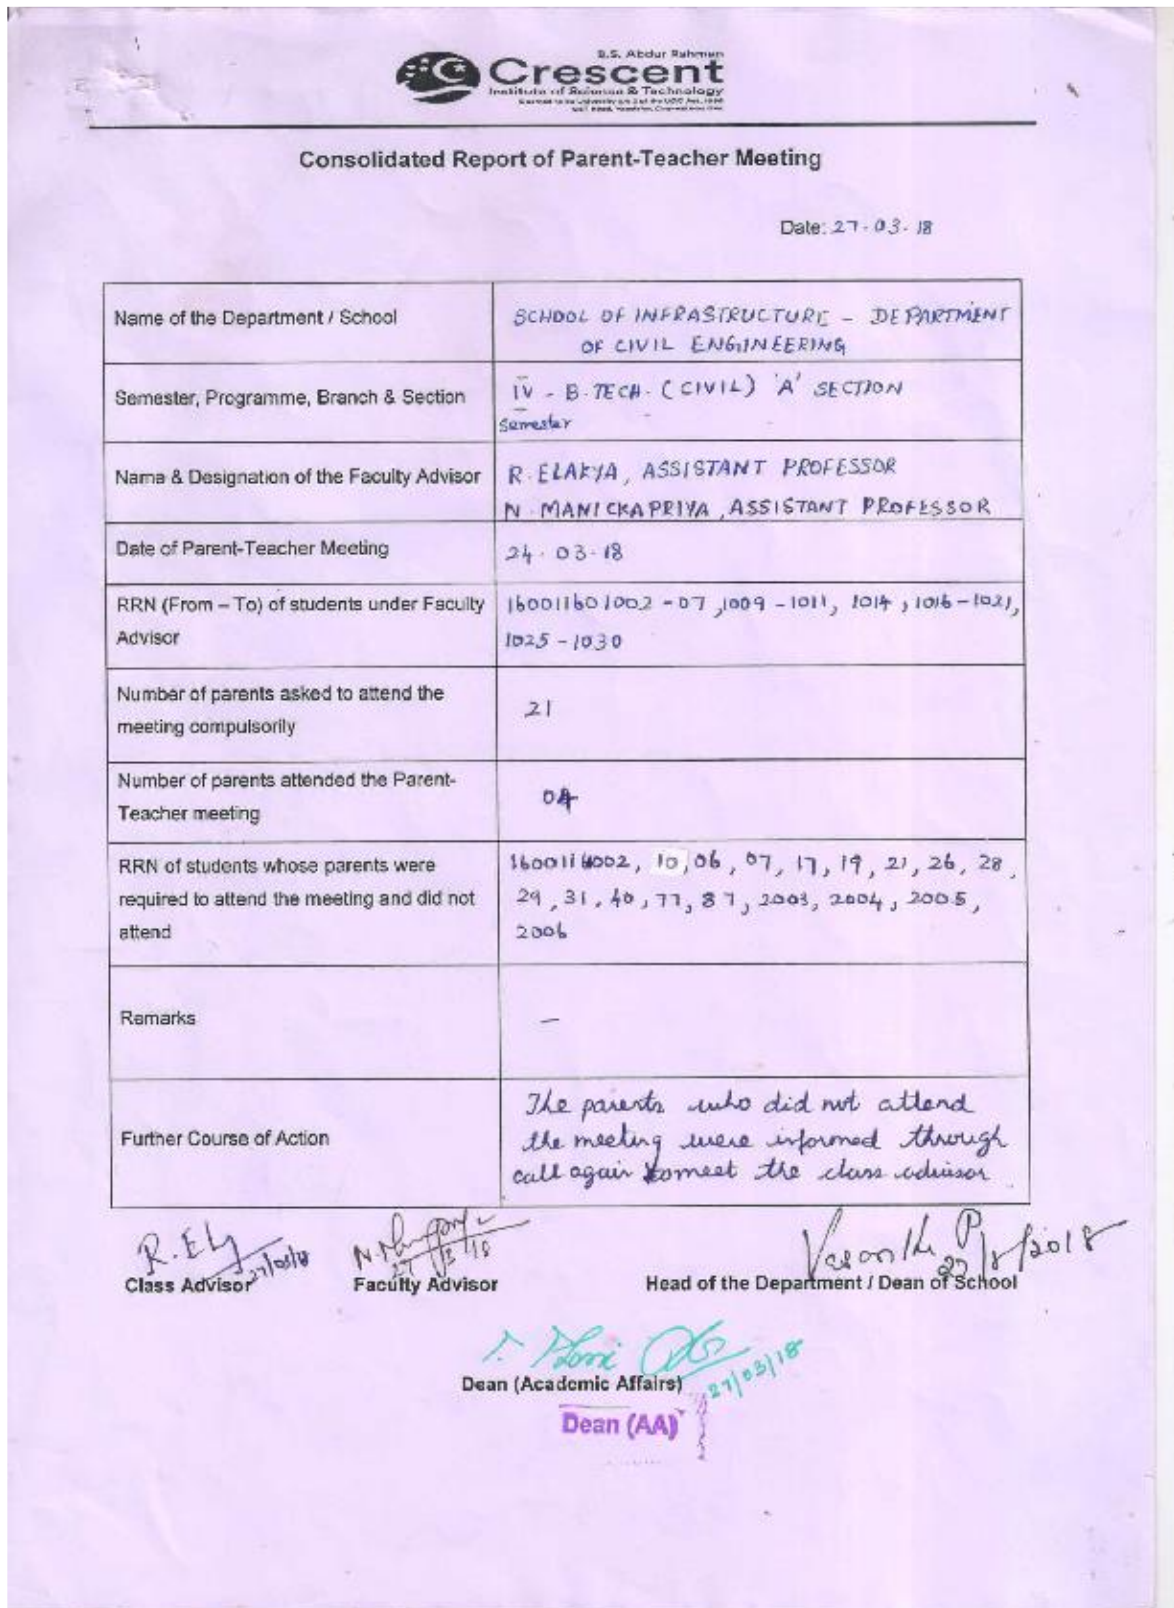 B.S. Abdur Rahman
Crescent
Institute of Science & Technology
Consolidated Report of Parent-Teacher Meeting
Date: 27-03-18
Name of the Department / School
SCHOOL OF INFRASTRUCTURE - DEPARTMENT
OF CIVIL ENGINEERING
Semester, Programme, Branch & Section
IV - B.TECH. (CIVIL) 'A' SECTION
Semester
Name & Designation of the Faculty Advisor
R. ELAKYA, ASSISTANT PROFESSOR
N. MANICKAPRIYA, ASSISTANT PROFESSOR
Date of Parent-Teacher Meeting
24.03.18
RRN (From – To) of students under Faculty
Advisor
160011601002 -07, 1009 -1011, 1014, 1016-1021,
1025 - 1030
Number of parents asked to attend the
meeting compulsorily
21
Number of parents attended the Parent-
Teacher meeting
04
RRN of students whose parents were
required to attend the meeting and did not
attend
10, 06, 07, 17, 19, 21, 26, 28,
29, 31, 40, 77, 87, 2003, 2004, 2005,
2006
Remarks
-
Further Course of Action
The parents who did not attend
the meeting were informed through
call again to meet the class advisor.
R. Ely
27/03/18
Class Advisor
Faculty Advisor
Head of the Department / Dean of School
27/03/18
Dean (Academic Affairs)
Dean (AA)